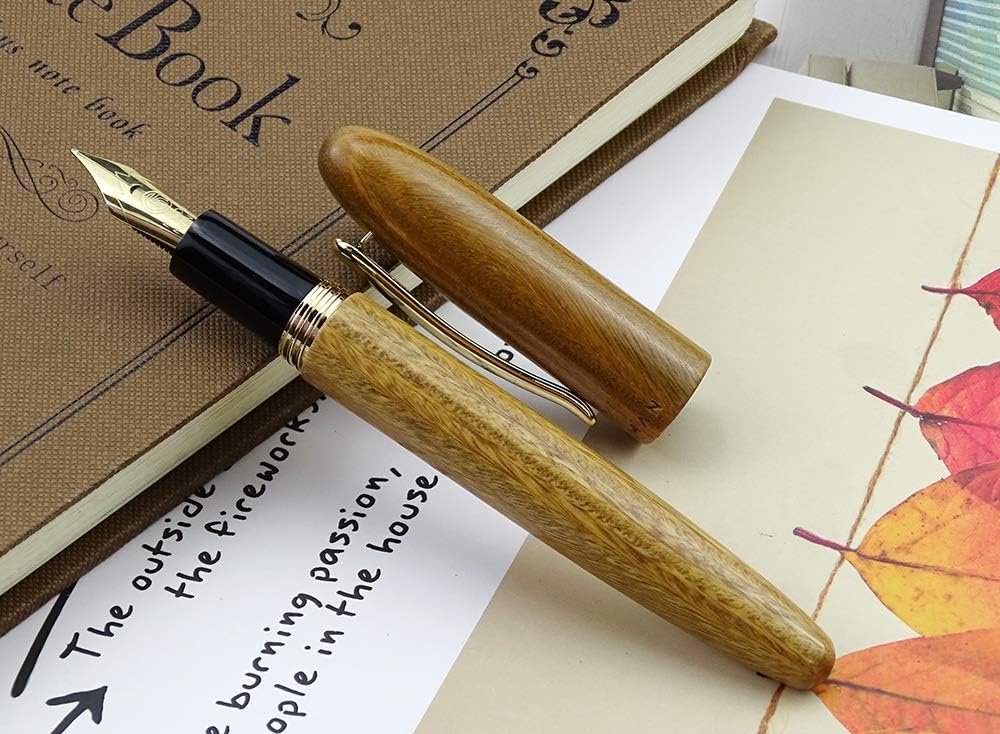 te Book
us note book
urself
The outside
the fireworks
burning passion,
ople in the house